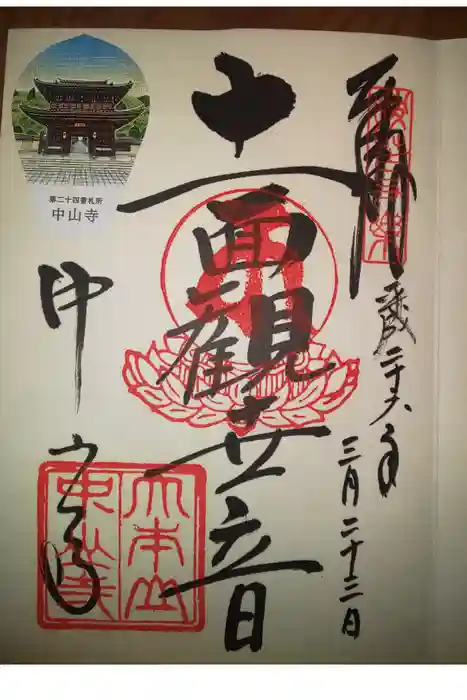 奉拝
平成二十六年
三月二十三日
十一面觀世音
中山寺
大本山
中山寺
第二十四番札所
中山寺